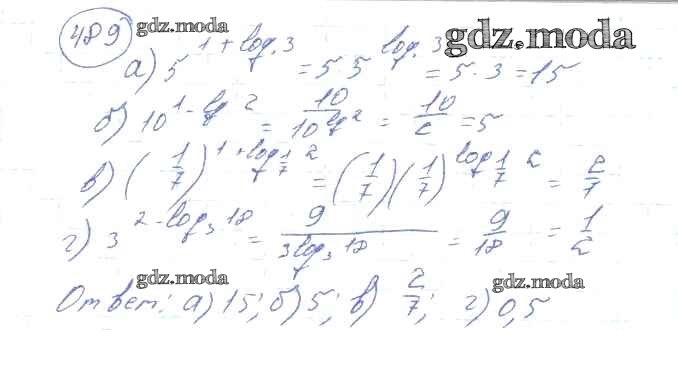 489 gdz.moda gdz.moda
а) 5^(1+log₅3) = 5·5^(log₅3) = 5·3 = 15
б) 10^(1-lg 2) = 10/10^(lg 2) = 10/2 = 5
в) (1/7)^(1+log_(1/7) 2) = (1/7)(1/7)^(log_(1/7) 2) = 2/7
г) 3^(2-log₃18) = 9/3^(log₃18) = 9/18 = 1/2
gdz.moda gdz.moda
Ответ: а) 15; б) 5; в) 2/7; г) 0,5
gdz.moda